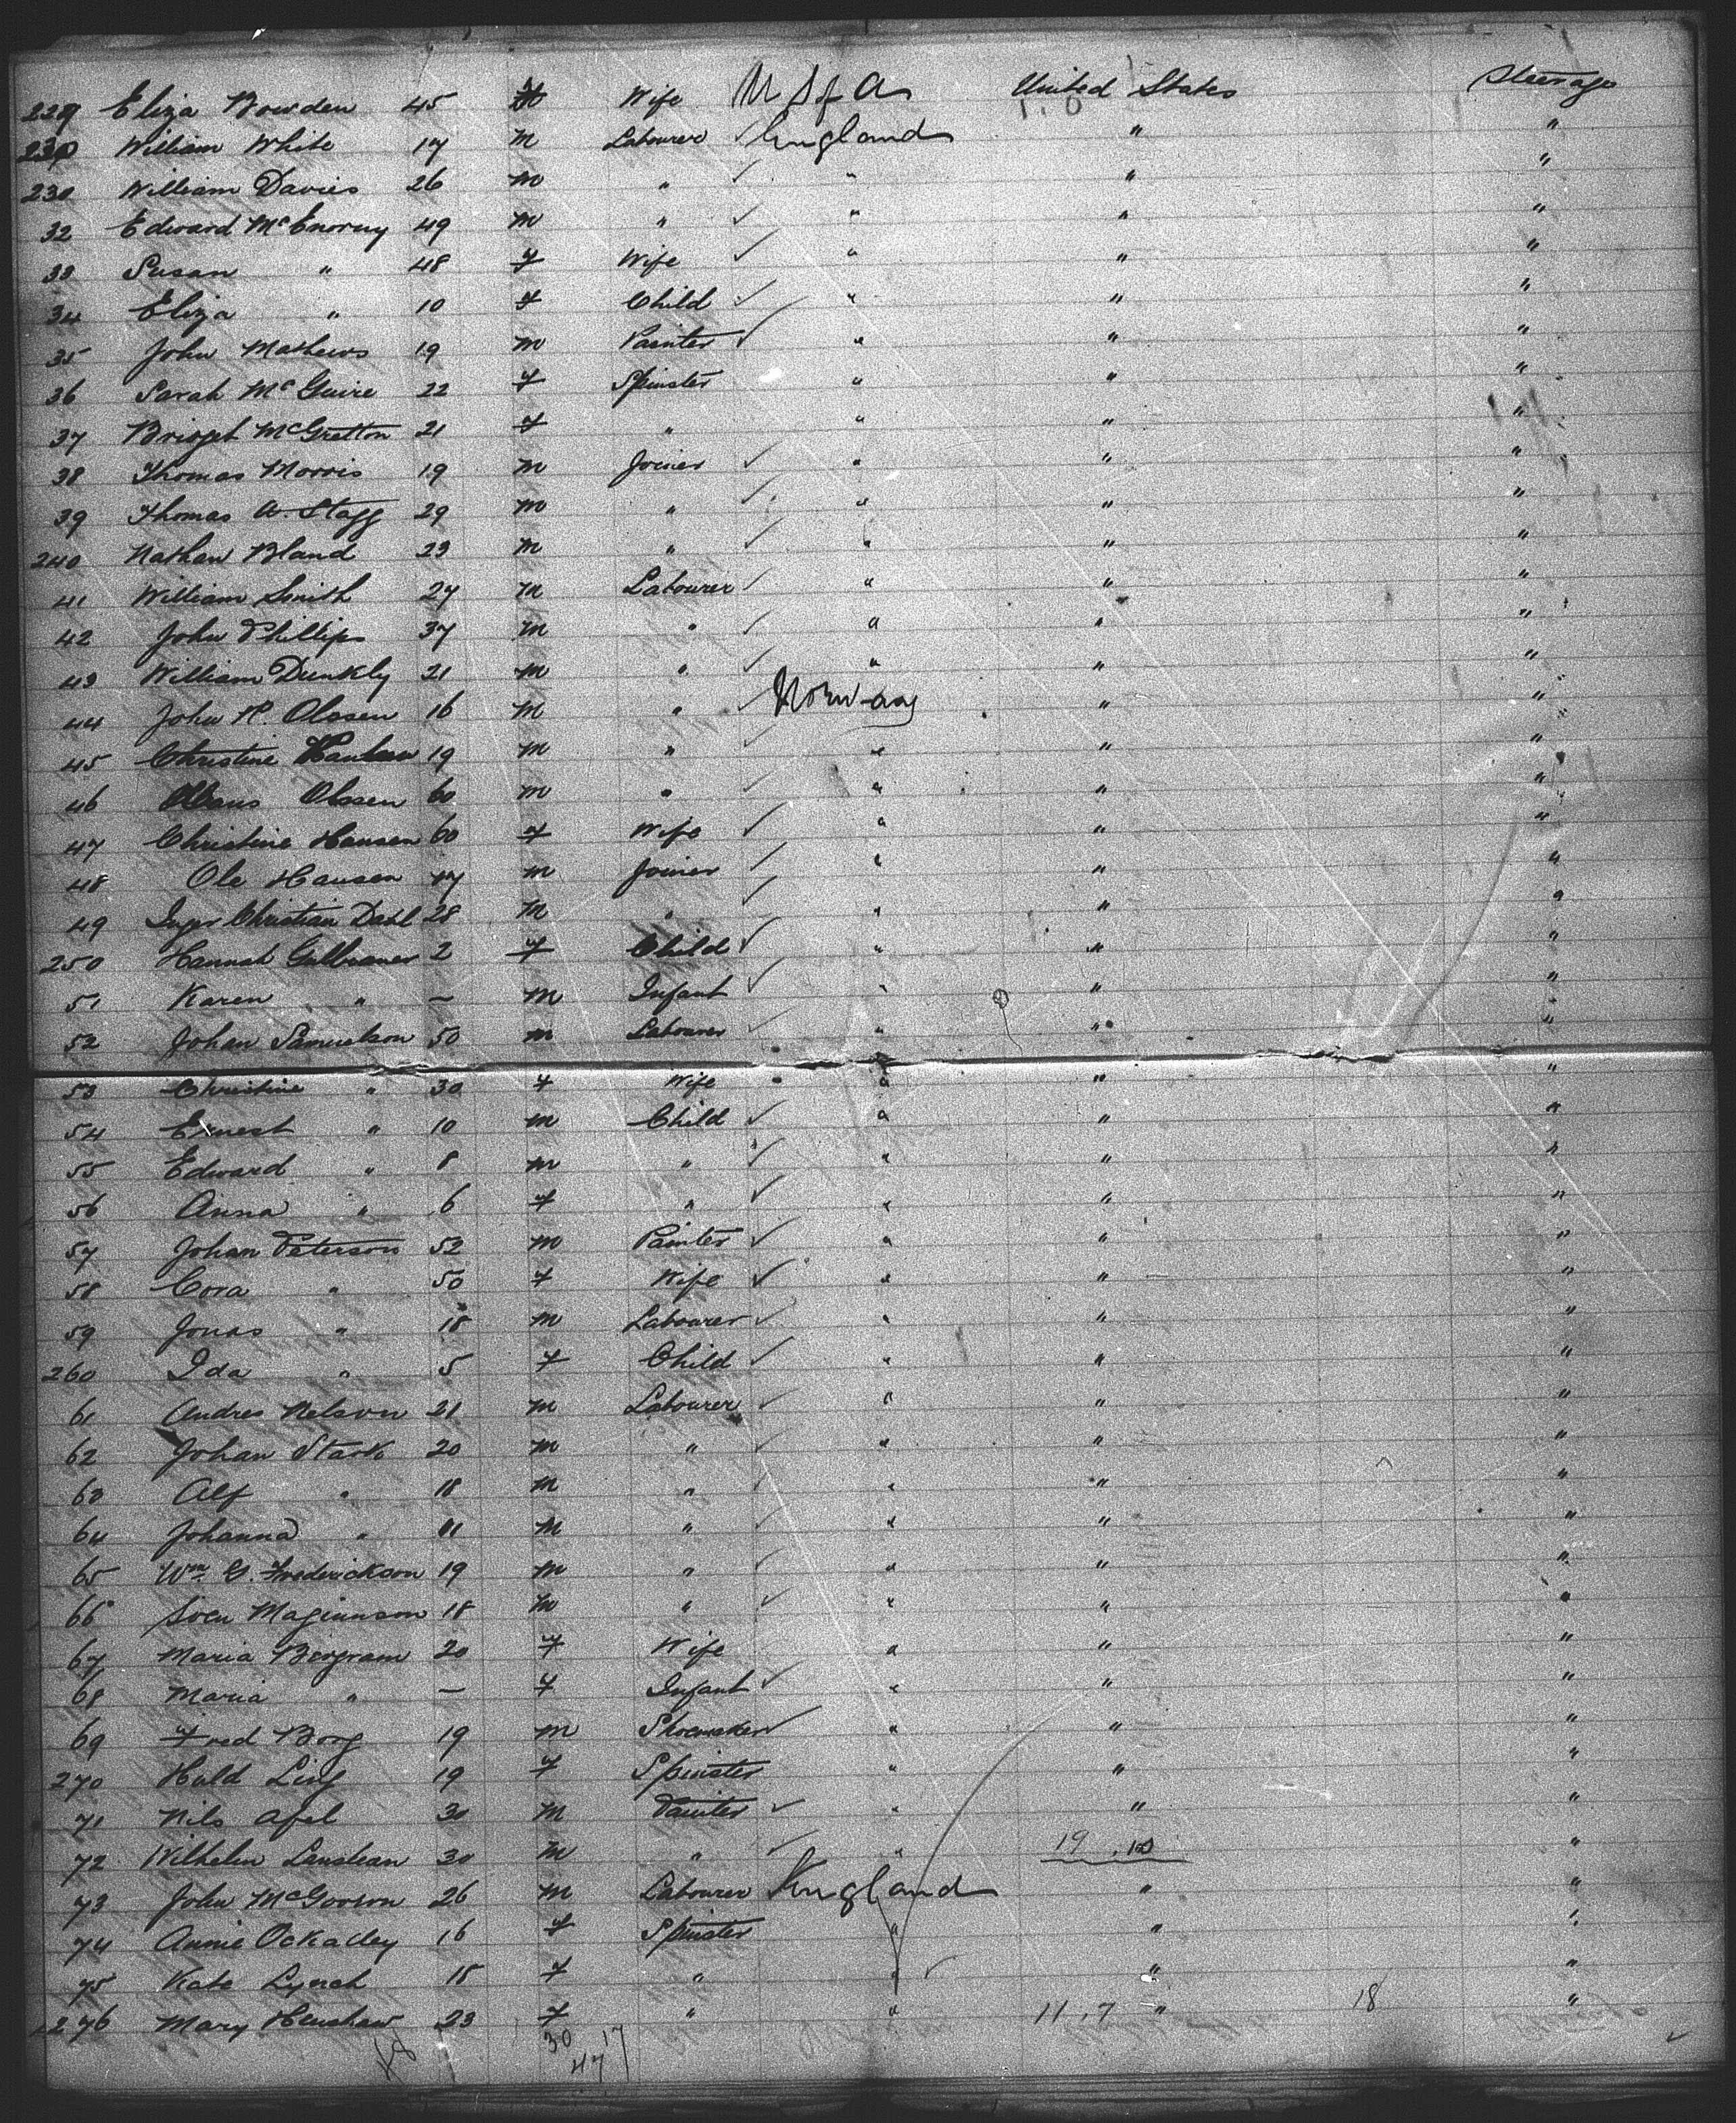 229 Eliza Bowden 45 F Wife U S of A United States Steerage
230 William White 17 M Labourer ✓ England " "
230 William Davies 26 M " ✓ " " "
32 Edward McEnorny 49 M " ✓ " " "
33 Susan " 48 F Wife ✓ " " "
34 Eliza " 10 F Child ✓ " " "
35 John Mathews 19 M Painter ✓ " " "
36 Sarah McGuire 22 F Spinster " " "
37 Bridget McGretton 21 F " " " "
38 Thomas Morris 19 M Joiner ✓ " " "
39 Thomas A. Stagg 29 M " ✓ " " "
240 Nathan Bland 23 M " ✓ " " "
41 William Smith 27 M Labourer ✓ " " "
42 John Phillips 37 M " ✓ " " "
43 William Dunkly 21 M " ✓ " " "
44 John H. Olssen 16 M " ✓ Norway " "
45 Christine 19 M " ✓ " " "
46 Olssen 60 M " ✓ " " "
47 Christine Hansen 60 F Wife ✓ " " "
48 Ole Hansen 17 M Joiner ✓ " " "
49 Christian Dahl 28 M " ✓ " " "
250 Hannah 2 F Child ✓ " " "
51 Karen " — M Infant ✓ " " "
52 Johan Samuelson 50 M Labourer ✓ " " "
53 Christine " 30 F Wife " " "
54 Ernest " 10 M Child ✓ " " "
55 Edward " 8 M " ✓ " " "
56 Anna " 6 F " ✓ " " "
57 Johan Peterson 52 M Painter ✓ " " "
58 Cora " 50 F Wife ✓ " " "
59 Jonas " 18 M Labourer ✓ " " "
260 Ida " 5 F Child ✓ " " "
61 Andres Nelson 21 M Labourer ✓ " " "
62 Johan Stark 20 M " ✓ " " "
63 Alf " 18 M " ✓ " " "
64 Johanna " 11 M " ✓ " " "
65 Wm. G. Frederickson 19 M " ✓ " " "
66 Sven Maginnson 18 M " ✓ " " "
67 Maria Bergram 20 F Wife " " "
68 Maria " — F Infant ✓ " " "
69 Fred Borg 19 M Shoemaker ✓ " " "
270 Huld Ling 19 F Spinster " " "
71 Nils Apel 30 M Painter ✓ " " "
72 Wilhelm 30 M " ✓ " 19 . 10 "
73 John McGovern 26 M Labourer England " "
74 Annie Ockalley 16 F Spinster " " "
75 Kate Lynch 18 F " " ✓ " "
276 Mary Henshaw 23 F " " 11 . 7 " 18 "
48 30 17
47